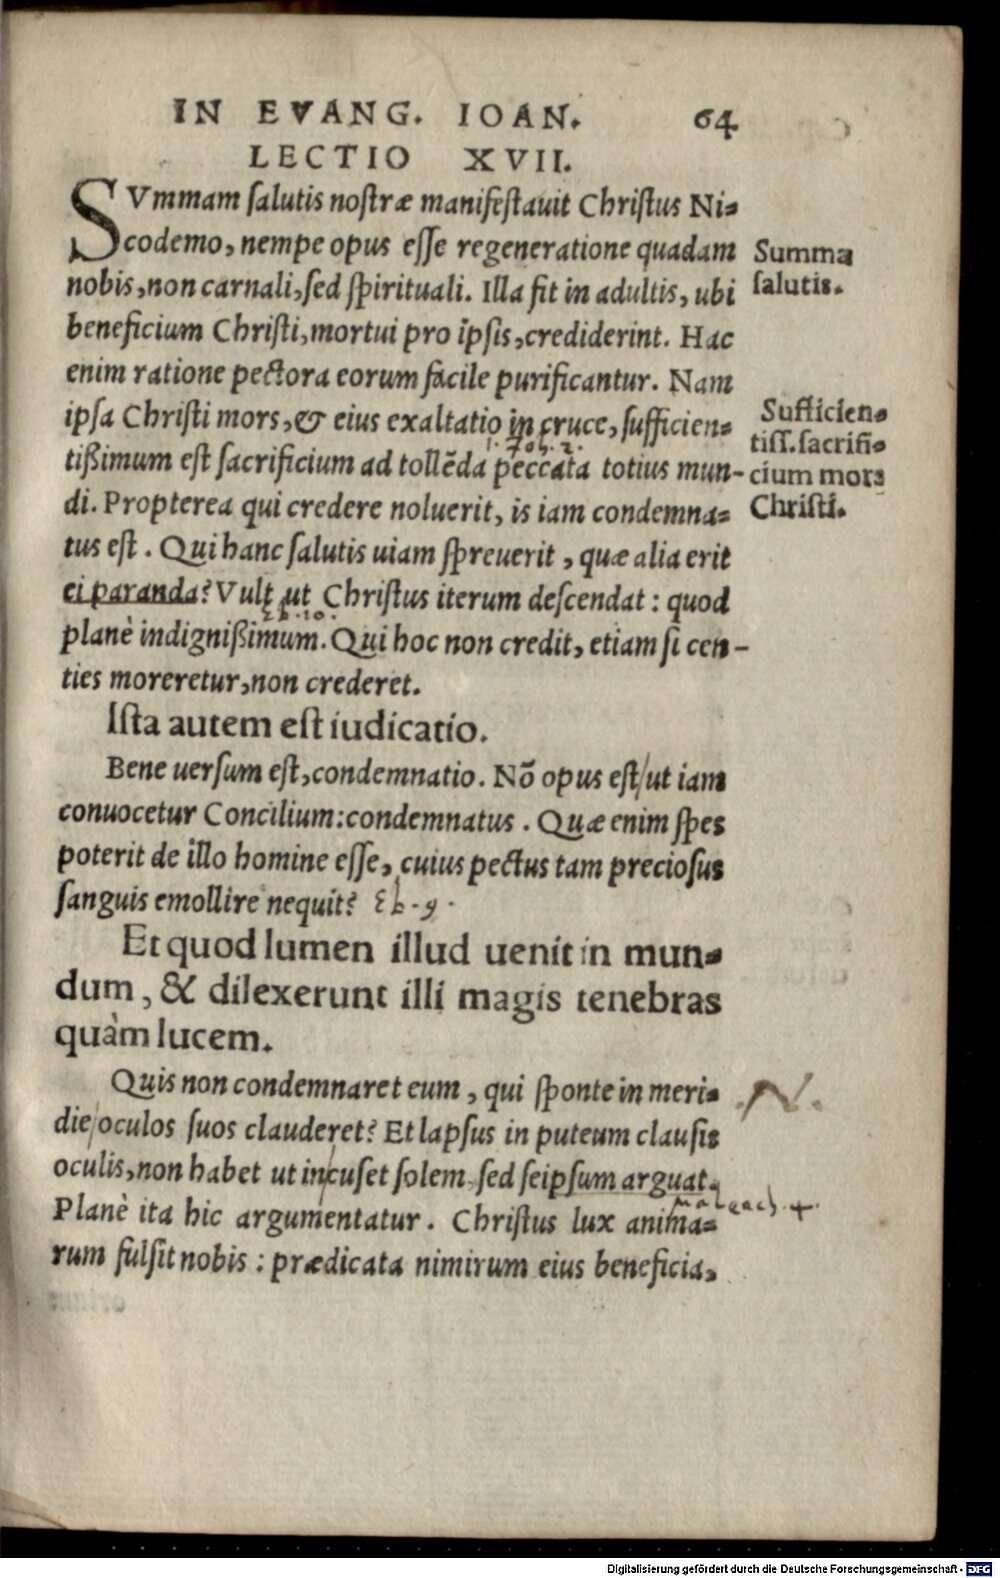 IN EVANG. IOAN. 64
LECTIO XVII.
SVmmam salutis nostræ manifestavit Christus Ni=
codemo, nempe opus esse regeneratione quadam
nobis, non carnali, sed spirituali. Illa fit in adultis, ubi
beneficium Christi, mortui pro ipsis, crediderint. Hac
enim ratione pectora eorum facile purificantur. Nam
ipsa Christi mors, & eius exaltatio in cruce, sufficien=
1. Joh. 2.
tißimum est sacrificium ad tollẽda peccata totius mun-
di. Propterea qui credere noluerit, is iam condemna=
tus est. Qui hanc salutis uiam spreuerit, quæ alia erit
ei paranda? Vult ut Christus iterum descendat: quod
Eb. 10.
planè indignißimum. Qui hoc non credit, etiam si cen-
ties moreretur, non crederet.
Ista autem est iudicatio.
Bene uersum est, condemnatio. Nõ opus est/ut iam
conuocetur Concilium: condemnatus. Quæ enim spes
poterit de illo homine esse, cuius pectus tam preciosus
sanguis emollire nequit? Eb. 9.
Et quod lumen illud uenit in mun=
dum, & dilexerunt illi magis tenebras
quàm lucem.
Quis non condemnaret eum, qui sponte in meri=
die/oculos suos clauderet? Et lapsus in puteum clausis
oculis, non habet ut incuset solem, sed seipsum arguat.
Maleach. 4.
Planè ita hic argumentatur. Christus lux anima=
rum fulsit nobis: prædicata nimirum eius beneficia,
Summa
salutis.
Sufficien=
tiss. sacrifi=
cium mors
Christi.
.N.
Digitalisierung gefördert durch die Deutsche Forschungsgemeinschaft - DFG